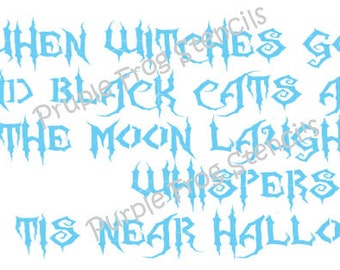 WHEN WITCHES GO
ND BLACK CATS A
THE MOON LAUGH
WHISPERS
TIS NEAR HALLO
Pruple Frog Stencils
Purple Frog Stencils